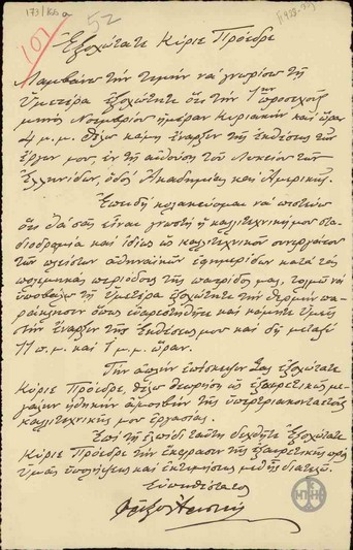 173/ 
107
52
Ἐξοχώτατε Κύριε Πρόεδρε
Λαμβάνω τὴν τιμὴν νὰ γνωρίσω τῇ
Ὑμετέρᾳ Ἐξοχότητι ὅτι τὴν 1ην προσεχοῦς
μηνὸς Νοεμβρίου ἡμέραν Κυριακὴν καὶ ὥραν
4 μ.μ. θέλω κάμη ἔναρξιν τῆς ἐκθέσεως τῶν
ἔργων μου, ἐν τῇ αἰθούσῃ τοῦ Λυκείου τῶν
Ἑλληνίδων, ὁδὸς Ἀκαδημίας καὶ Ἀμερικῆς.
Ἐπειδὴ κολακεύομαι νὰ πιστεύω
ὅτι θὰ σᾶς εἶναι γνωστὴ ἡ καλλιτεχνική μου στα-
διοδρομία καὶ ἰδίως ὡς καλλιτεχνικοῦ συνεργάτου
τῶν πλείστων ἀθηναϊκῶν ἐφημερίδων κατὰ τὰς
πολεμικὰς περιόδους τῆς πατρίδος μας, τολμῶ νὰ
ὑποβάλω τῇ Ὑμετέρᾳ Ἐξοχότητι τὴν θερμὴν πα-
ράκλησιν ὅπως εὐαρεστηθῆτε καὶ κάμητε Ὑμεῖς
τὴν ἔναρξιν τῆς Ἐκθέσεώς μου καὶ δὴ μεταξὺ
11 π.μ. καὶ 1 μ.μ. ὥραν.
Τὴν ἐπίσκεψίν Σας Ἐξοχώτατε
Κύριε Πρόεδρε, θέλω θεωρήση ὡς ἐξαιρετικῶς με-
γάλην ἠθικὴν ἀμοιβὴν τῆς ὑπερτριακονταετοῦς
καλλιτεχνικῆς μου ἐργασίας.
Ἐπὶ τῇ ἐλπίδι ταύτῃ δεχθῆτε Ἐξοχώτατε
Κύριε Πρόεδρε τὴν ἔκφρασιν τῆς ἐξαιρετικῆς πρὸς
Ὑμᾶς ὑπολήψεως καὶ ἐκτιμήσεως μεθ' ἧς διατελῶ.
Εὐπειθέστατος